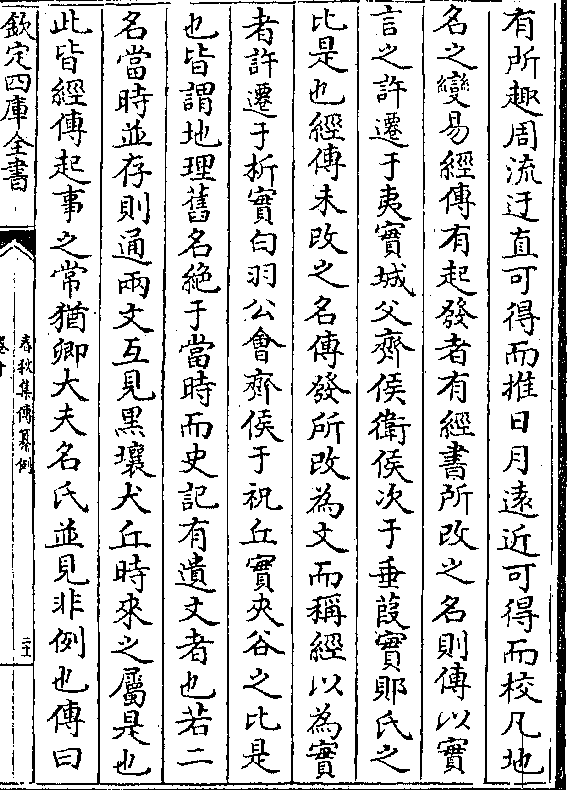 有所趣周流迂直可得而推日月遠近可得而校凡地
名之變易經傳有起發者有經書所改之名則傳以實
言之許遷于夷實城父齊侯衛侯次于垂葭實郹氏之
比是也經傳未改之名傳發所改為文而稱經以為實
者許遷于析實白羽公會齊侯于祝丘實夾谷之比是
也皆謂地理舊名絶于當時而史記有遺文者也若二
名當時並存則通兩文互見黒壤犬丘時來之屬是也
此皆經傳起事之常猶卿大夫名氏並見非例也傳曰
欽定四庫全書
春秋集傳纂例
卷十